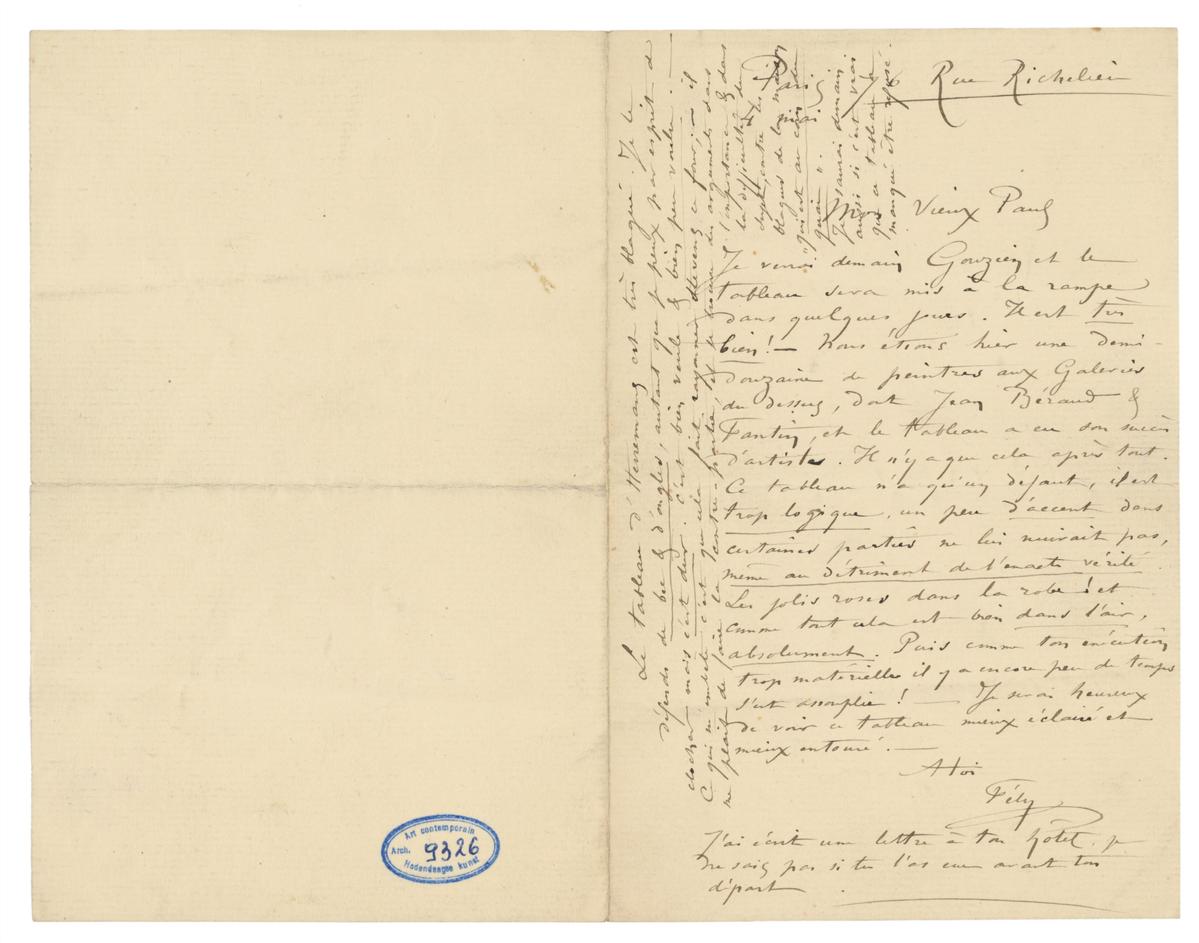 Rue Richelieu
Paris
mai.
Mon Vieux Paul
Je verrai demain Gouzien et le
tableau sera mis à la rampe
dans quelques jours. Il est très
bien! — Nous étions hier une demi-
douzaine de peintres aux Galeries
du dessus, dont Jean Béraud &
Fantin, et le tableau a eu son succès
d'artistes. Il n'y a que cela après tout.
Ce tableau n'a qu'un défaut, il est
trop logique, un peu d'accent dans
certaines parties ne lui nuirait pas,
même au détriment de l'exacte vérité.
Les jolis roses dans la robe! et
comme tout cela est bien dans l'air,
absolument. Puis comme ton exécution
trop matérielle il y a encore peu de temps
s'est assouplie! — Je serai heureux
de voir ce tableau mieux éclairé et
mieux entouré. —
A toi
Fély
J'ai écrit une lettre à ton hôtel, je
ne sais pas si tu l'as eue avant ton
départ.
Le tableau d'Herremans est très blagué. Je le
défends de bec & d'ongles, autant que je peux par esprit de
clocher mais c'est dur. C'est bien veule & bien peu voulu. —
Ce qui m'embête c'est que cela fait rayonner Stevens ce four; — il
me plait de faire la contre-partie et je trouve des arguments dans
l'importance & dans
la difficulté du
sujet, entre les
blagues de la maison
"qui est au coin du
quai".
Je saurai demain
aussi si c'est vrai
que ce tableau a
manqué être refusé.
Art contemporain
Arch. 9326
Hedendaagse kunst